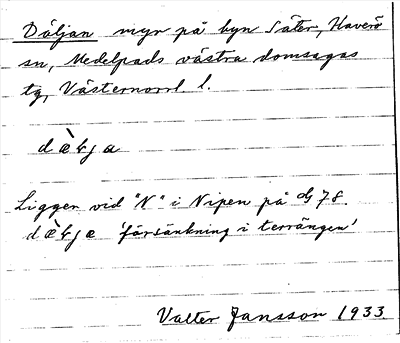 Däljan myr på byn Säter, Haverö
sn, Medelpads västra domsagas
tg, Västernorrl. l.
Ligger vid "N" i Nipen på G 78.
'försänkning i terrängen'
Valter Jansson 1933.